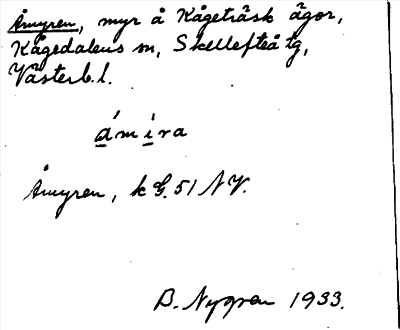 Åmyren, myr å Kågeträsk ägor,
Kågedalens sn, Skellefteå tg,
Västerb. l.
ámira
Åmyren, k G. 51 NV.
B. Nygren 1933.